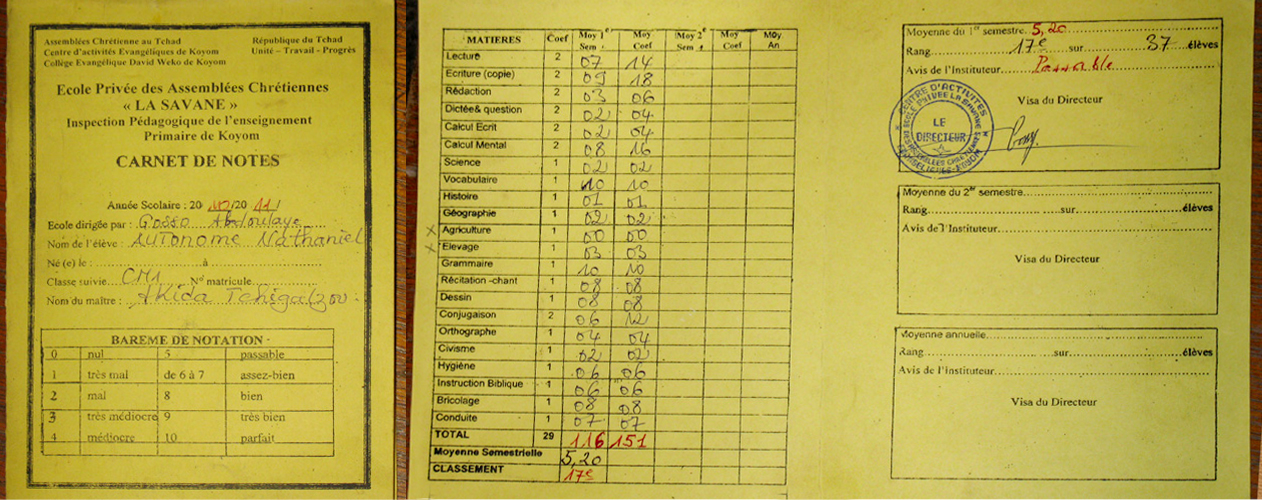 Assemblées Chrétienne au Tchad République du Tchad
Centre d'activités Evangéliques de Koyom Unité – Travail - Progrès
Collège Evangélique David Weko de Koyom
Ecole Privée des Assemblées Chrétiennes
« LA SAVANE »
Inspection Pédagogique de l'enseignement
Primaire de Koyom
CARNET DE NOTES
Année Scolaire : 20 10/20 11/
Ecole dirigée par : Gosso Abdoulaye
Nom de l'élève : AUTONOME Nathaniel
Né (e) le : à
Classe suivie CM1 N° matricule
Nom du maître :
BAREME DE NOTATION -
0 nul 5 passable
1 très mal de 6 à 7 assez-bien
2 mal 8 bien
3 très médiocre 9 très bien
4 médiocre 10 parfait
MATIERES Coef Moy 1e Sem Moy Coef Moy 2e Sem Moy Coef Moy An
Lecture 2 07 14
Ecriture (copie) 2 09 18
Rédaction 2 03 06
Dictée& question 2 02 04
Calcul Ecrit 2 02 04
Calcul Mental 2 08 16
Science 1 02 02
Vocabulaire 1 10 10
Histoire 1 01 01
Géographie 1 02 02
x Agriculture 1 00 00
x Elevage 1 03 03
Grammaire 1 10 10
Récitation -chant 1 08 08
Dessin 1 08 08
Conjugaison 2 06 12
Orthographe 1 04 04
Civisme 1 02 02
Hygiène 1 06 06
Instruction Biblique 1 06 06
Bricolage 1 08 08
Conduite 1 07 07
TOTAL 29 116 151
Moyenne Semestrielle 5,20
CLASSEMENT 17e
Moyenne du 1er semestre 5,20
Rang 17e sur 37 élèves
Avis de l'Instituteur Passable
Visa du Directeur
CENTRE D'ACTIVITES
LE
DIRECTEUR
Moyenne du 2er semestre
Rang sur élèves
Avis de l'Instituteur
Visa du Directeur
Moyenne annuelle
Rang sur élèves
Avis de l'Instituteur
Visa du Directeur